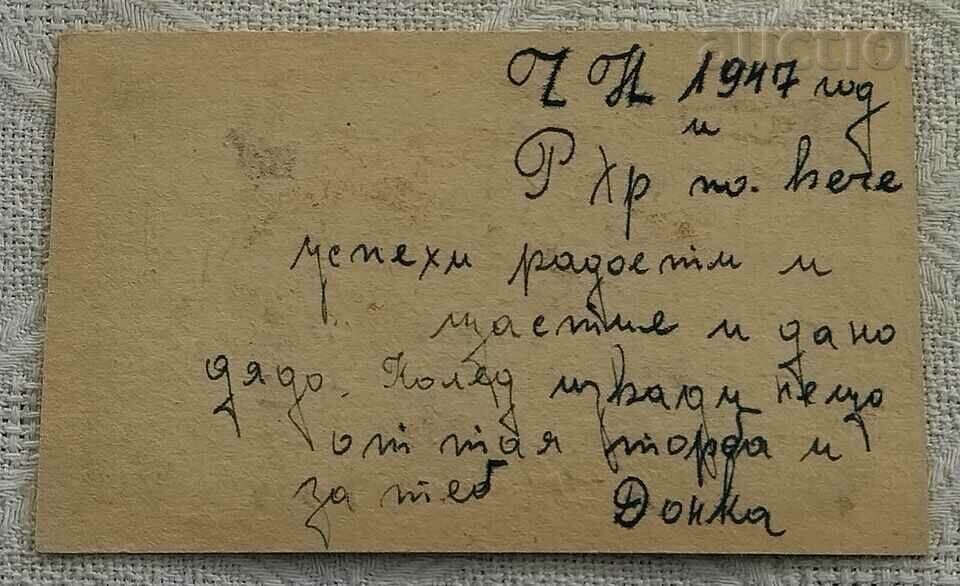 auction
Ч Н 1947 год
и
Р Хр по. вече
успехи радости и
щастие и дано
дядо. Колед извади нещо
от тая торба и
за теб Донка